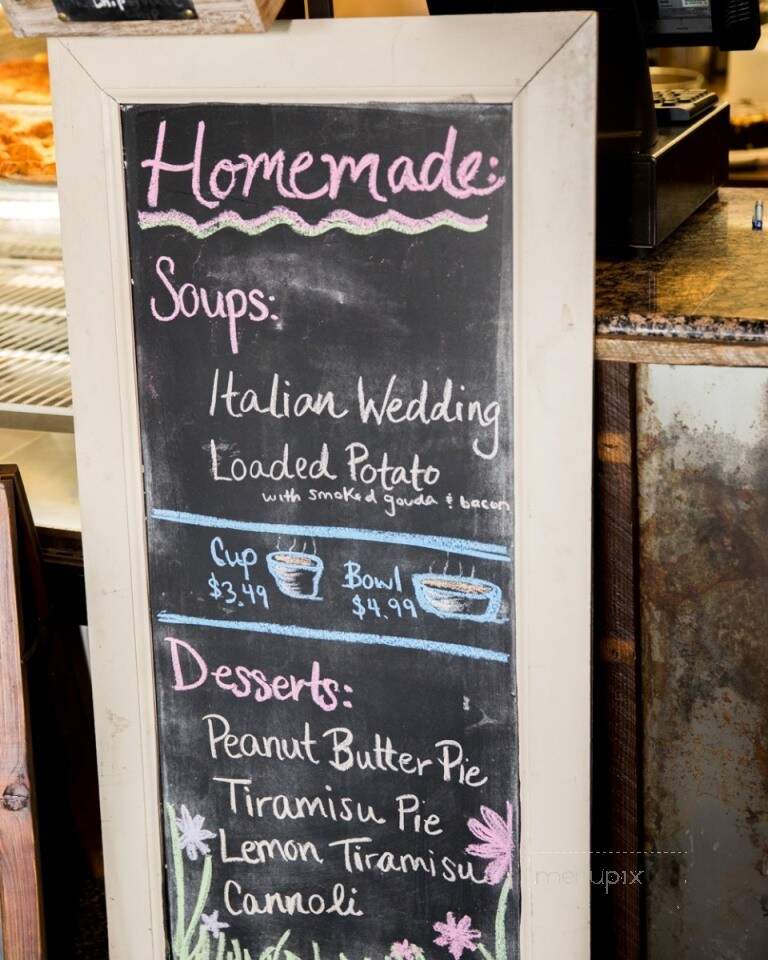 Homemade:
Soups:
Italian Wedding
Loaded Potato
with smoked gouda & bacon
Cup
$3.49
Bowl
$4.99
Desserts:
Peanut Butter Pie
Tiramisu Pie
Lemon Tiramisu
Cannoli
menupix